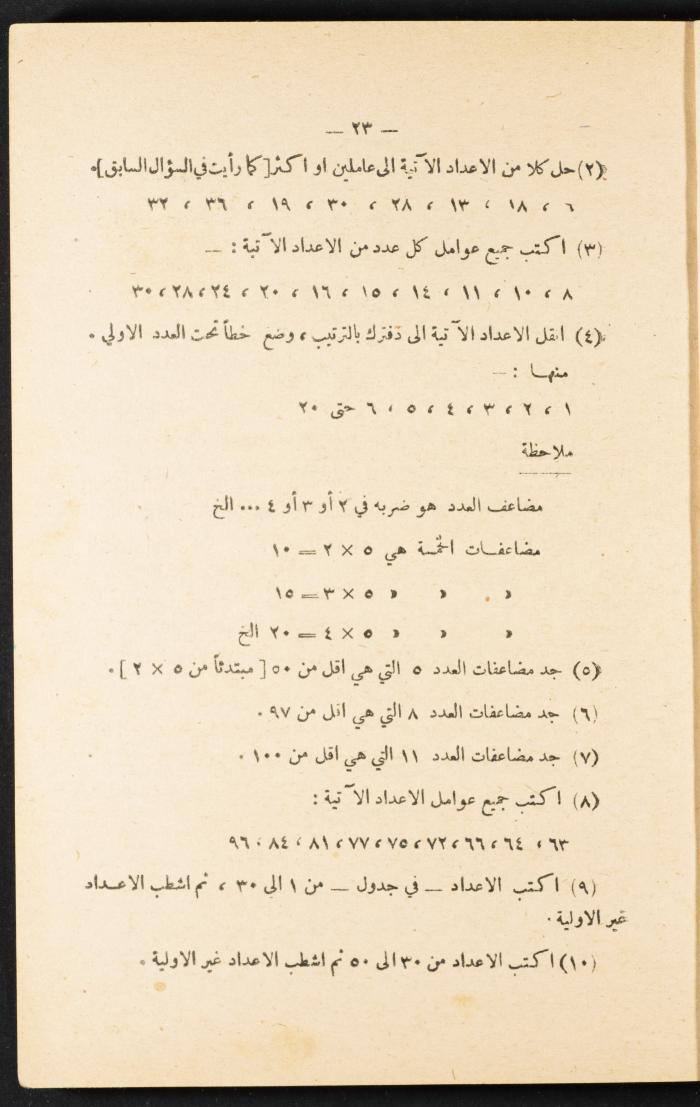 — ٢٣ —
(٢) حل كلا من الاعداد الآتية الى عاملين او اكثر [كما رأيت في السؤال السابق].
٦ ، ١٨ ، ١٣ ، ٢٨ ، ٣٠ ، ١٩ ، ٣٦ ، ٣٢
(٣) اكتب جميع عوامل كل عدد من الاعداد الآتية : —
٨ ، ١٠ ، ١١ ، ١٤ ، ١٥ ، ١٦ ، ٢٠ ، ٢٤ ، ٢٨ ، ٣٠
(٤) انقل الاعداد الآتية الى دفترك بالترتيب ، وضع خطاً تحت العدد الاولي .
منها : —
١ ، ٢ ، ٣ ، ٤ ، ٥ ، ٦ حتى ٢٠
ملاحظة
مضاعف العدد هو ضربه في ٢ أو ٣ أو ٤ ... الخ
مضاعفات الخمسة هي ٥ × ٢ = ١٠
» » » ٥ × ٣ = ١٥
» » » ٥ × ٤ = ٢٠ الخ
(٥) جد مضاعفات العدد ٥ التي هي اقل من ٥٠ [مبتدئاً من ٥ × ٢] .
(٦) جد مضاعفات العدد ٨ التي هي اقل من ٩٧ .
(٧) جد مضاعفات العدد ١١ التي هي اقل من ١٠٠ .
(٨) اكتب جميع عوامل الاعداد الآتية :
٦٣ ، ٦٤ ، ٦٦ ، ٧٢ ، ٧٥ ، ٧٧ ، ٨١ ، ٨٤ ، ٩٦
(٩) اكتب الاعداد — في جدول — من ١ الى ٣٠ ، ثم اشطب الاعداد
غير الاولية .
(١٠) اكتب الاعداد من ٣٠ الى ٥٠ ثم اشطب الاعداد غير الاولية .